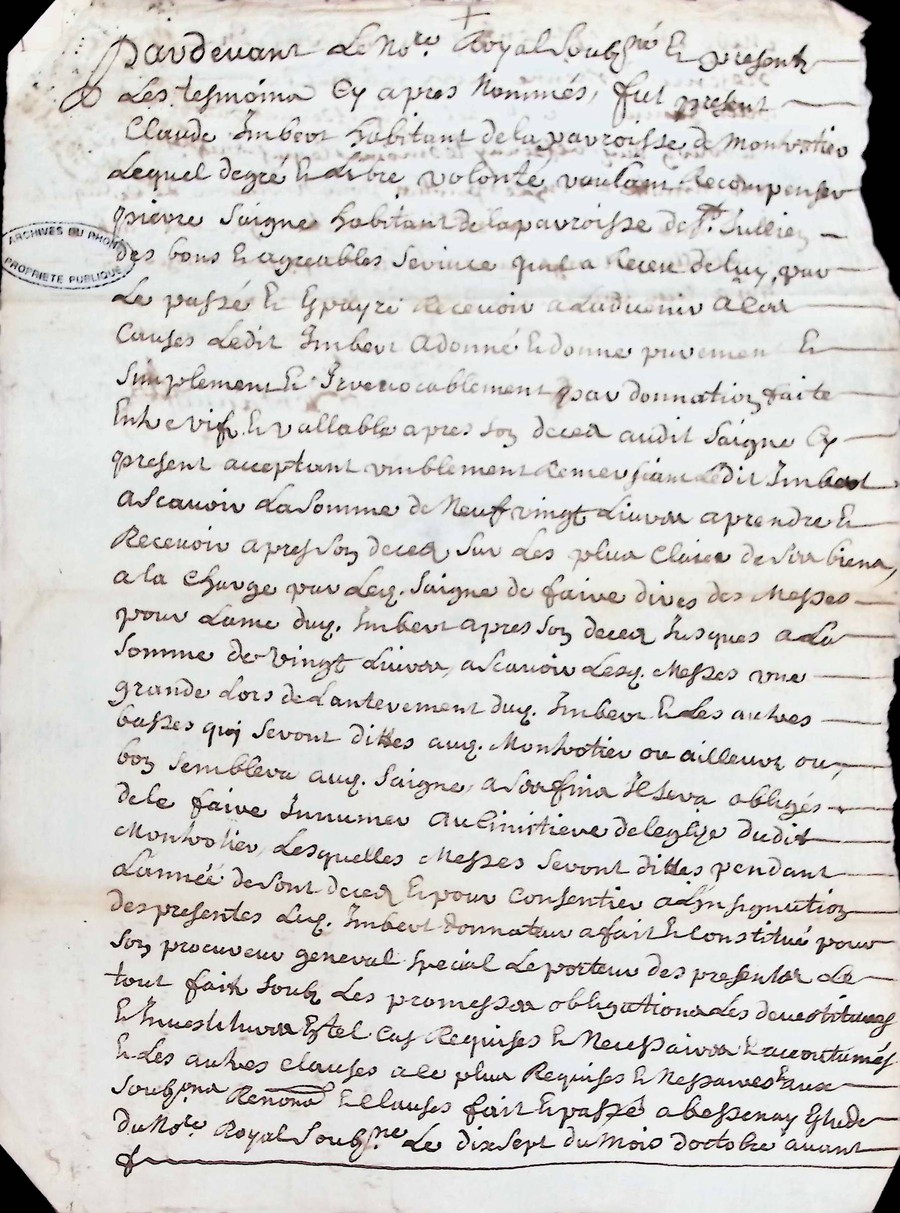 +
Pardevant Le No.re Royal Soubs.né Et presents
Les tesmoins Cy apres Nommés, fut present
Claude Imbert habitant de la parroisse de Montrotier
Lequel de gré Et Libre volonte voulant Recompenser
pierre Saigne habitant de la parroisse de St. Jullien
ARCHIVES DU RHONE
PROPRIETE PUBLIQUE
des bons Et agreables Service quil a Receu de luy, par
Le passé Et Espayre Recevoir a Ladvenir A Ces
Causes Ledit Imbert a donné Et donne purement Et
Simplement Et Irrevocablement par donnation faite
Entre vifs Et vallable apres son deces audit Saigne Cy
present acceptant Remersiant Ledit Imbert
a Scavoir La Somme de Neuf vingt Livres a prendre Et
Recevoir apres son deces Sur Les plus Clairs de Ses biens,
a la Charge par Led. Saigne de faire dires des Messes
pour Lame dud. Imbert apres son deces Jusques a La
Somme de vingt Livres, a Scavoir Lesd. Messes une
grande Lors de Lanterement dud. Imbert Et Les autres
basses qui Seront dittes aud. Montrotier ou ailleurs ou,
bon Semblera aud. Saigne, a Ses fins Il Sera obligés
de le faire Inhumer au Cimitiere de leglize dudit
Montrotier, Lesquelles Messes Seront dittes pendant
Lannéé de Sont deces Et pour Consentier a Linsignuation
des presentes Led. Imbert donnateur a fait Et Constitué pour
Son procureur general Special Le porteur des presentes Le
tout fait Soubs Les promesses obligations Les devestitures
Et Investitures En tel Cas Requises Et Necessaires Et accoutumés
Et Les autres clauses a ce plus Requises Et Nessaires Et aux
Soubmons Renons Et Clauses fait Et passé a bessenay Estude
du No.re Royal Soubs.né Le dix sept du Mois doctobre avant